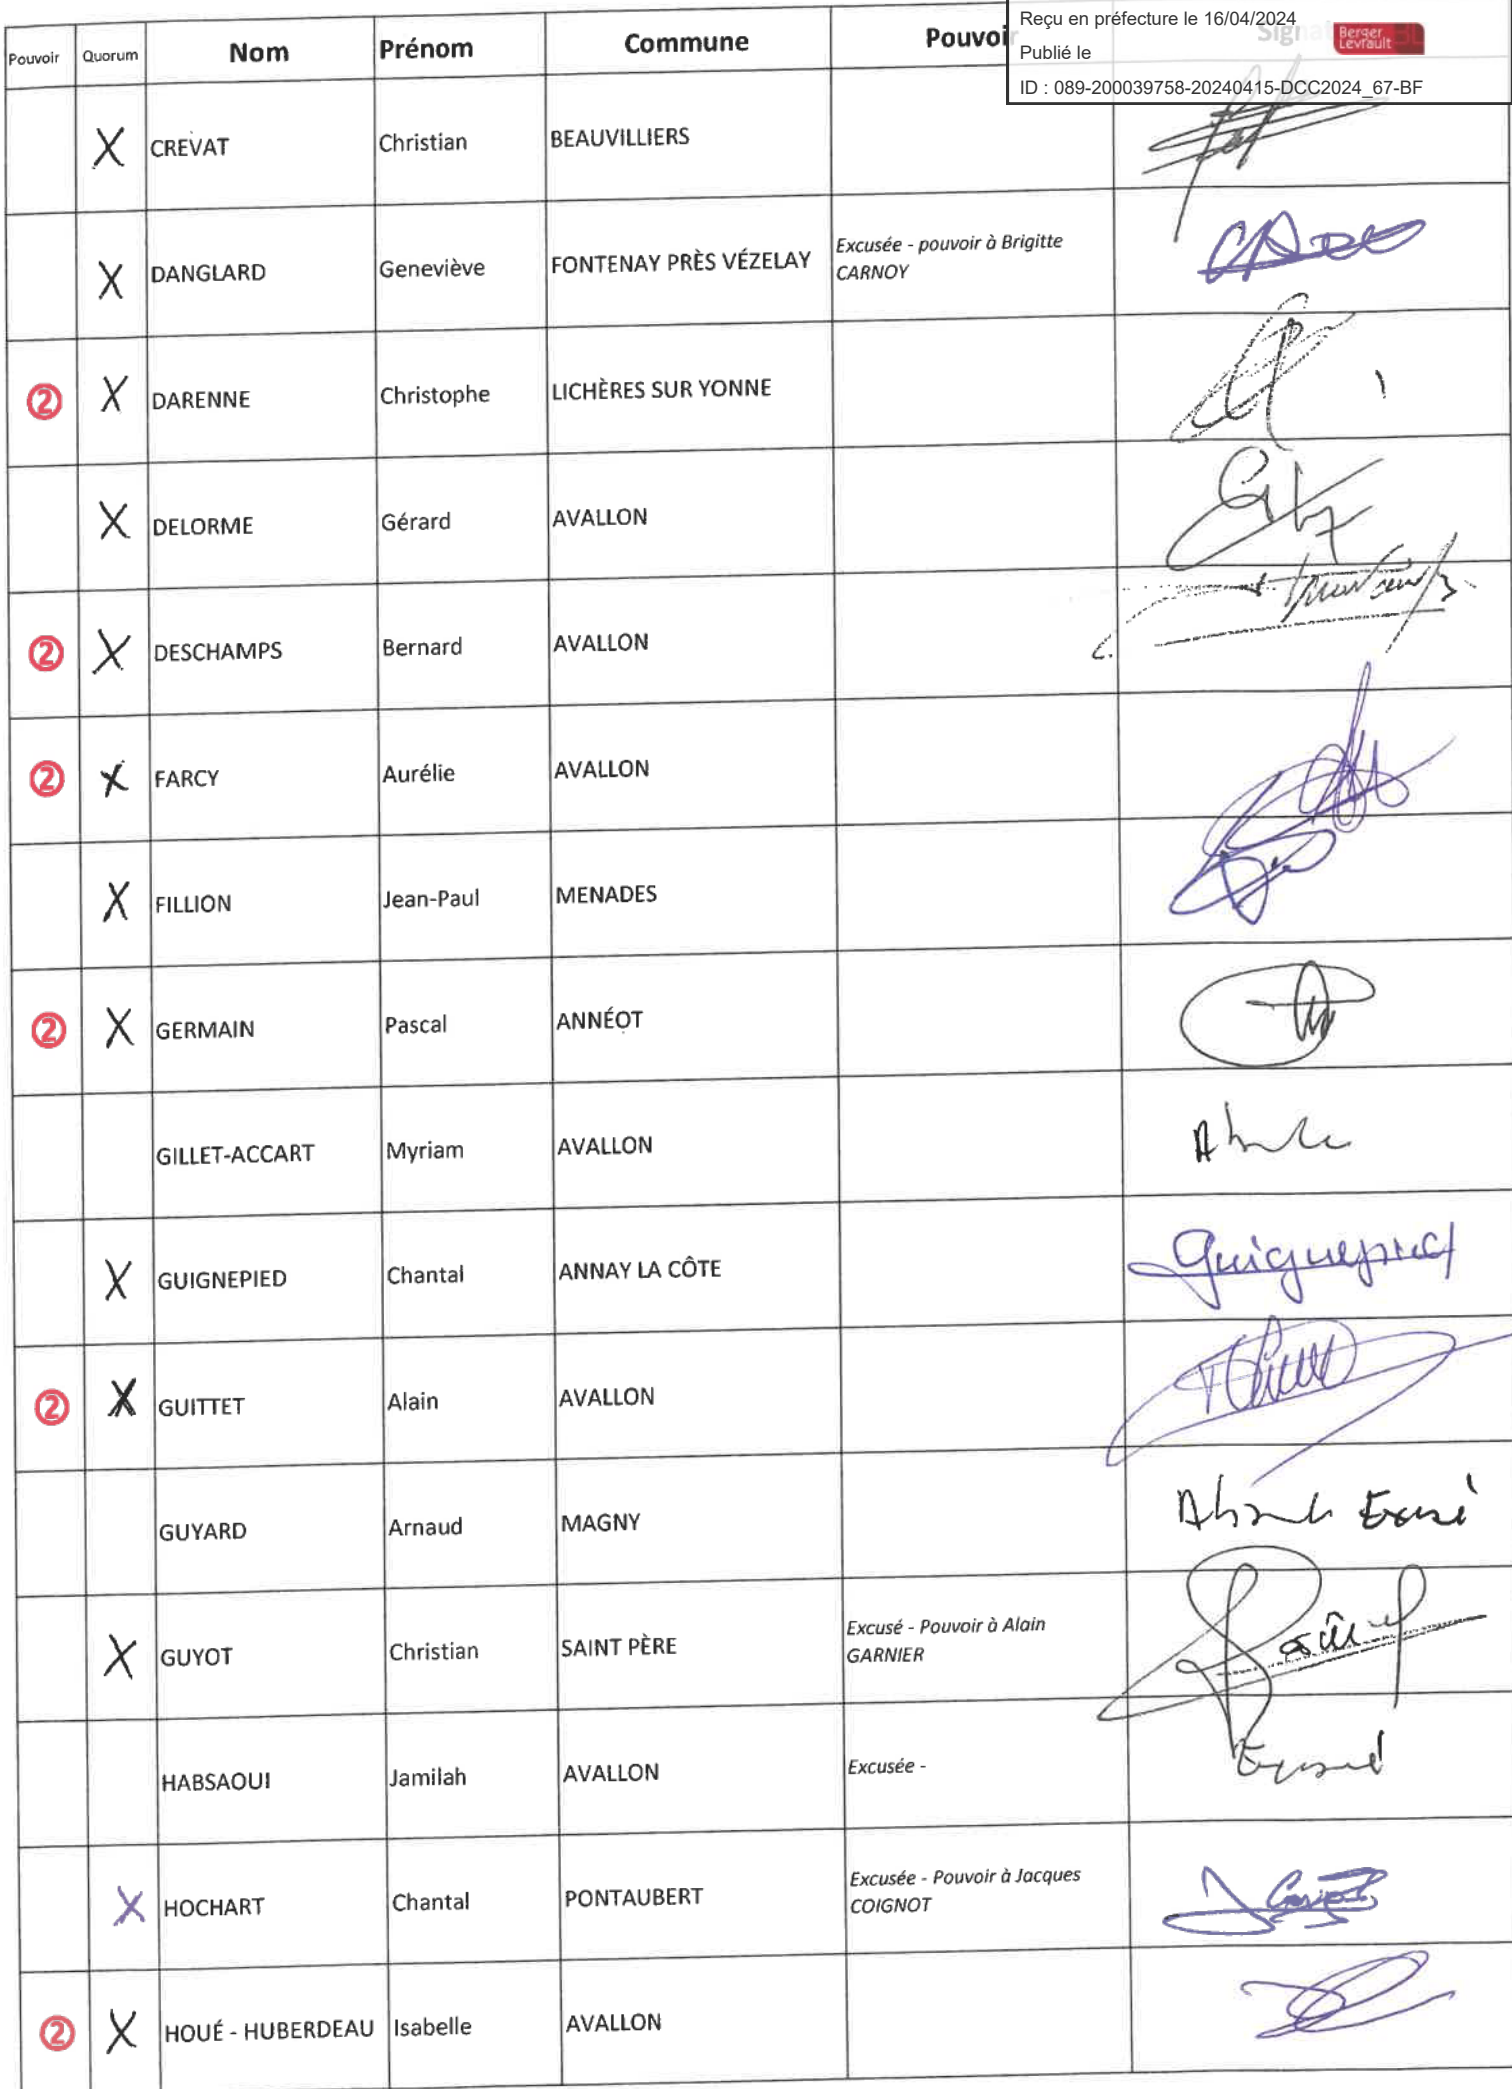 Reçu en préfecture le 16/04/2024
Publié le
Berger Levrault
ID : 089-200039758-20240415-DCC2024_67-BF
Pouvoir Quorum Nom Prénom Commune Pouvoir
X CREVAT Christian BEAUVILLIERS
X DANGLARD Geneviève FONTENAY PRÈS VÉZELAY Excusée - pouvoir à Brigitte
CARNOY
② X DARENNE Christophe LICHÈRES SUR YONNE
X DELORME Gérard AVALLON
② X DESCHAMPS Bernard AVALLON
② X FARCY Aurélie AVALLON
X FILLION Jean-Paul MENADES
② X GERMAIN Pascal ANNÉOT
GILLET-ACCART Myriam AVALLON
X GUIGNEPIED Chantal ANNAY LA CÔTE Guignepied
② X GUITTET Alain AVALLON
GUYARD Arnaud MAGNY Absent Excusé
X GUYOT Christian SAINT PÈRE Excusé - Pouvoir à Alain
GARNIER
HABSAOUI Jamilah AVALLON Excusée -
X HOCHART Chantal PONTAUBERT Excusée - Pouvoir à Jacques
COIGNOT
② X HOUÉ - HUBERDEAU Isabelle AVALLON